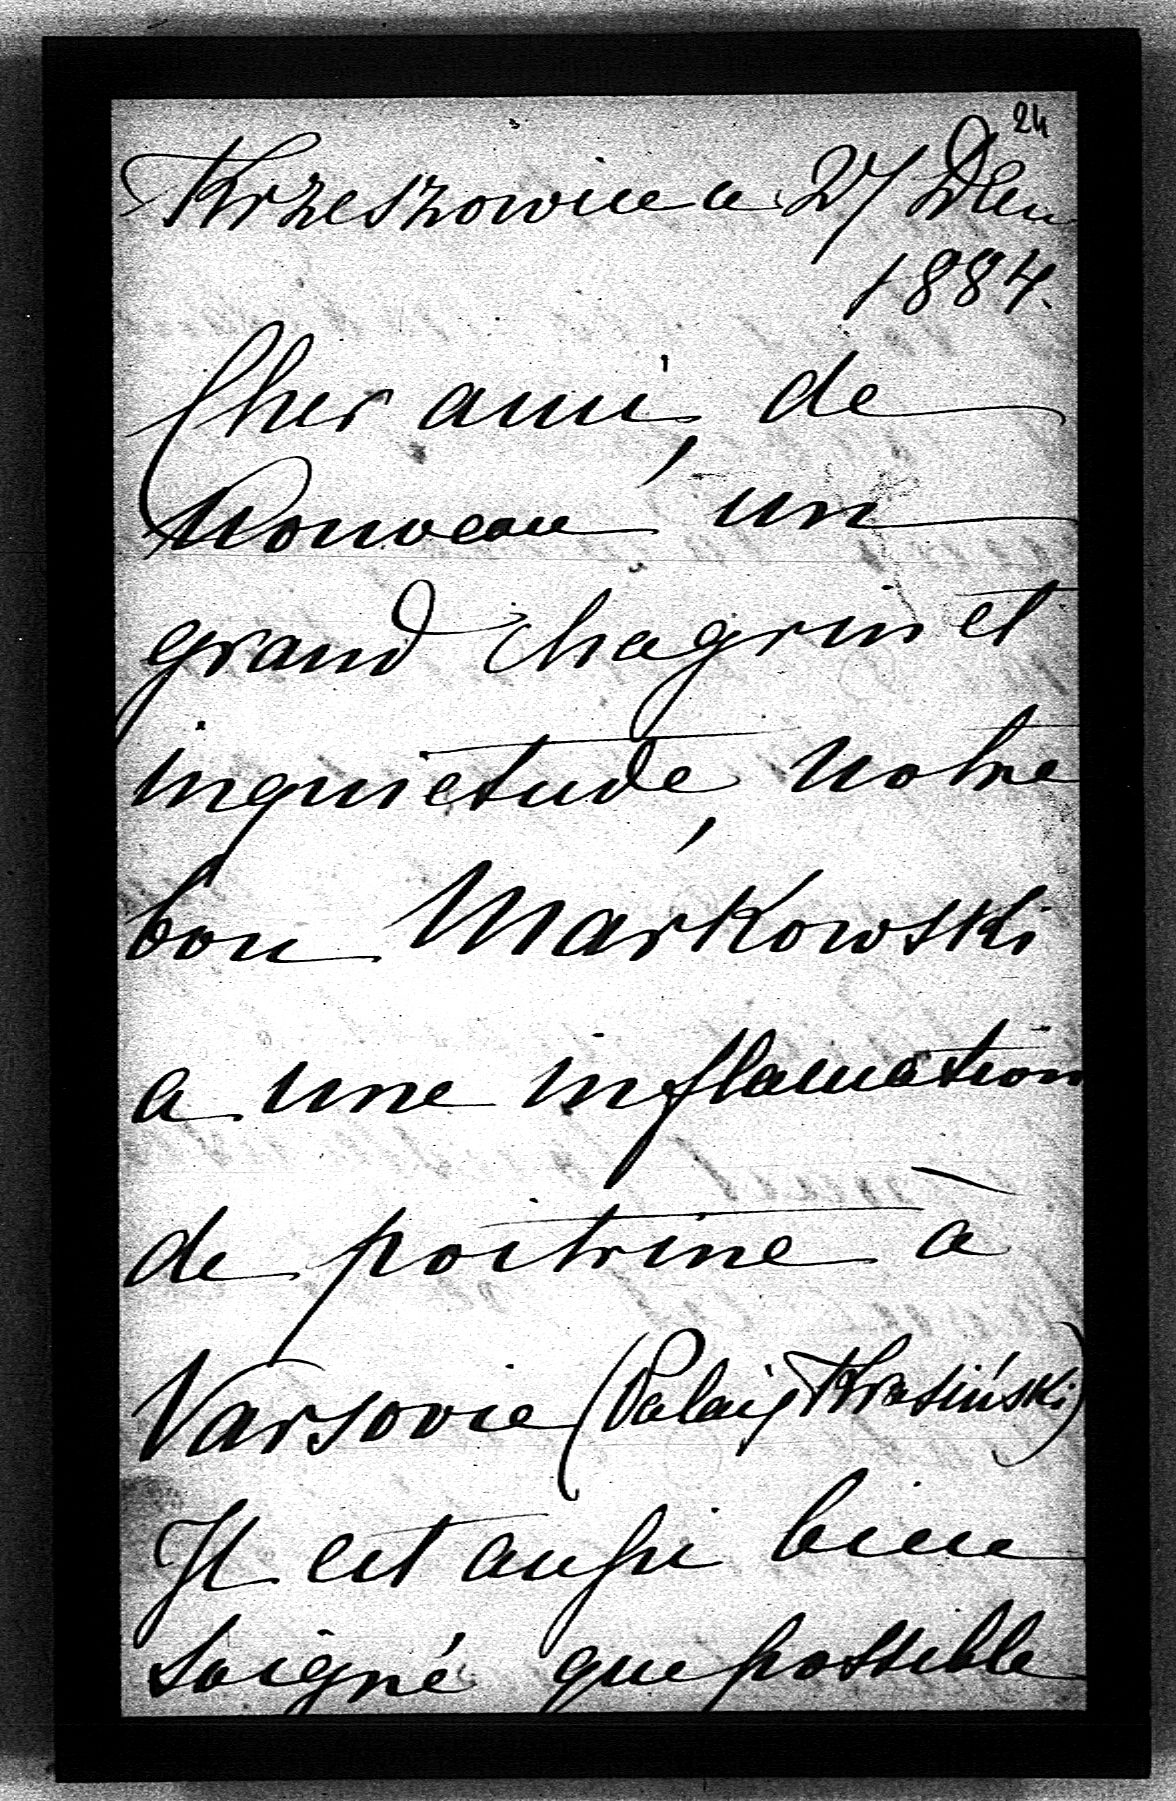 24
Krzeszowice a 27 Dbre
1884.
Cher ami, de
Nouveau un
grand chagrin et
inquietude, notre
bon Markowski
a une inflamation
de poitrine à
Varsovie (Palais Krasiński)
Il est aussi bien
soigné que possible